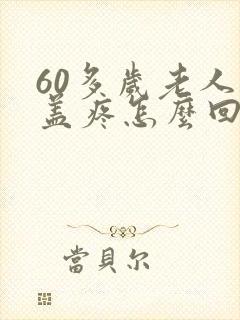 60多歲老人
蓋疼怎麼回
當貝尔